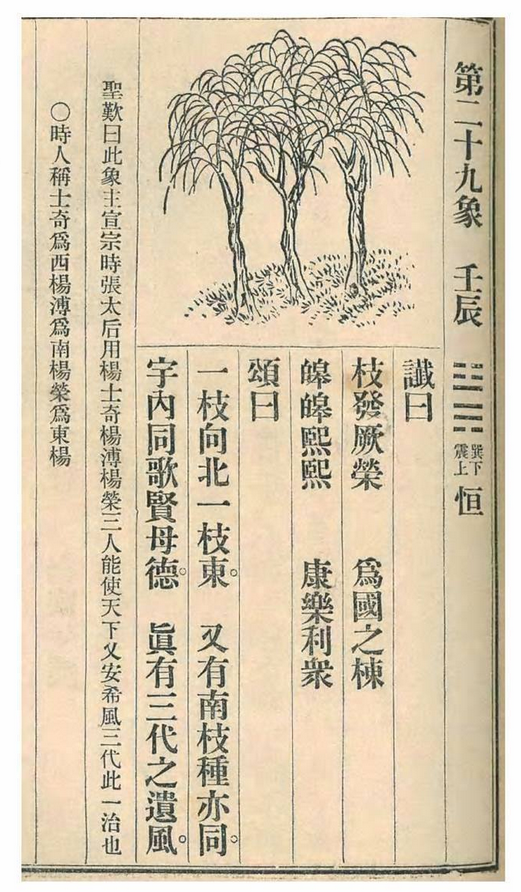 第二十九象 壬辰 巽下震上 恒
讖曰
枝發厥榮 爲國之棟
皞皞熙熙 康樂利衆
頌曰
一枝向北一枝東。 又有南枝種亦同。
宇內同歌賢母德。 眞有三代之遺風。
聖歎曰此象主宣宗時張太后用楊士奇楊溥楊榮三人能使天下乂安希風三代此一治也
〇時人稱士奇爲西楊溥爲南楊榮爲東楊